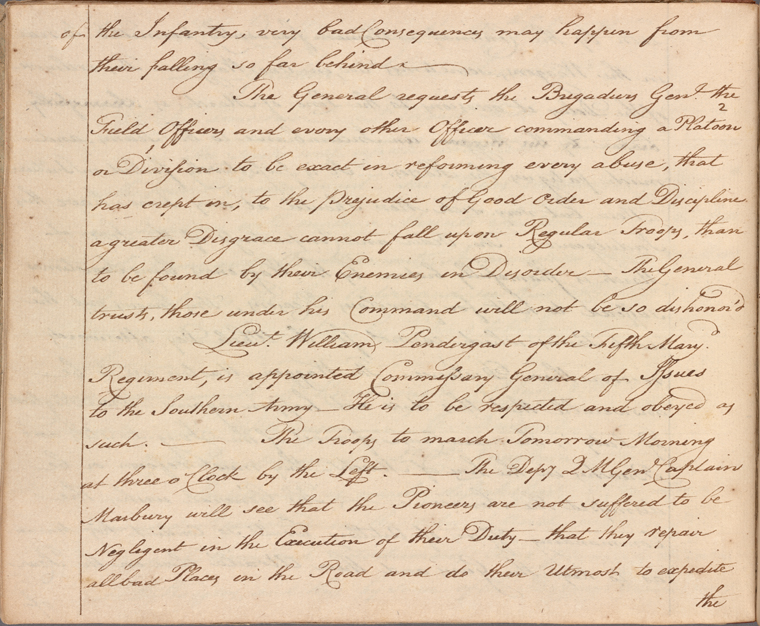 of the Infantry, very bad Consequences may happen from
their falling so far behind x —
The General requests the Brigadiers Genl. the
2
Field Officers and every other Officer commanding a Platoon
or Division to be exact in reforming every abuse, that
has crept in, to the prejudice of Good Order and Discipline
a greater Disgrace cannot fall upon Regular Troops, than
to be found by their Enemies in Disorder — The General
trusts, those under his Command will not be so dishonor'd
Lieut. William Pendergast of the Fifth Mary.d
Regiment, is appointed Commissary General of Issues
to the Southern Army — He is to be respected and obeyed as
such. — The Troops to march Tomorrow Morning
at three o Clock by the Left. — The Depy Q M Genl. Captain
Marbury will see that the Pioneers are not suffered to be
Negligent in the Execution of their Duty — that they repair
all bad Places in the Road and do their Utmost to expedite
the